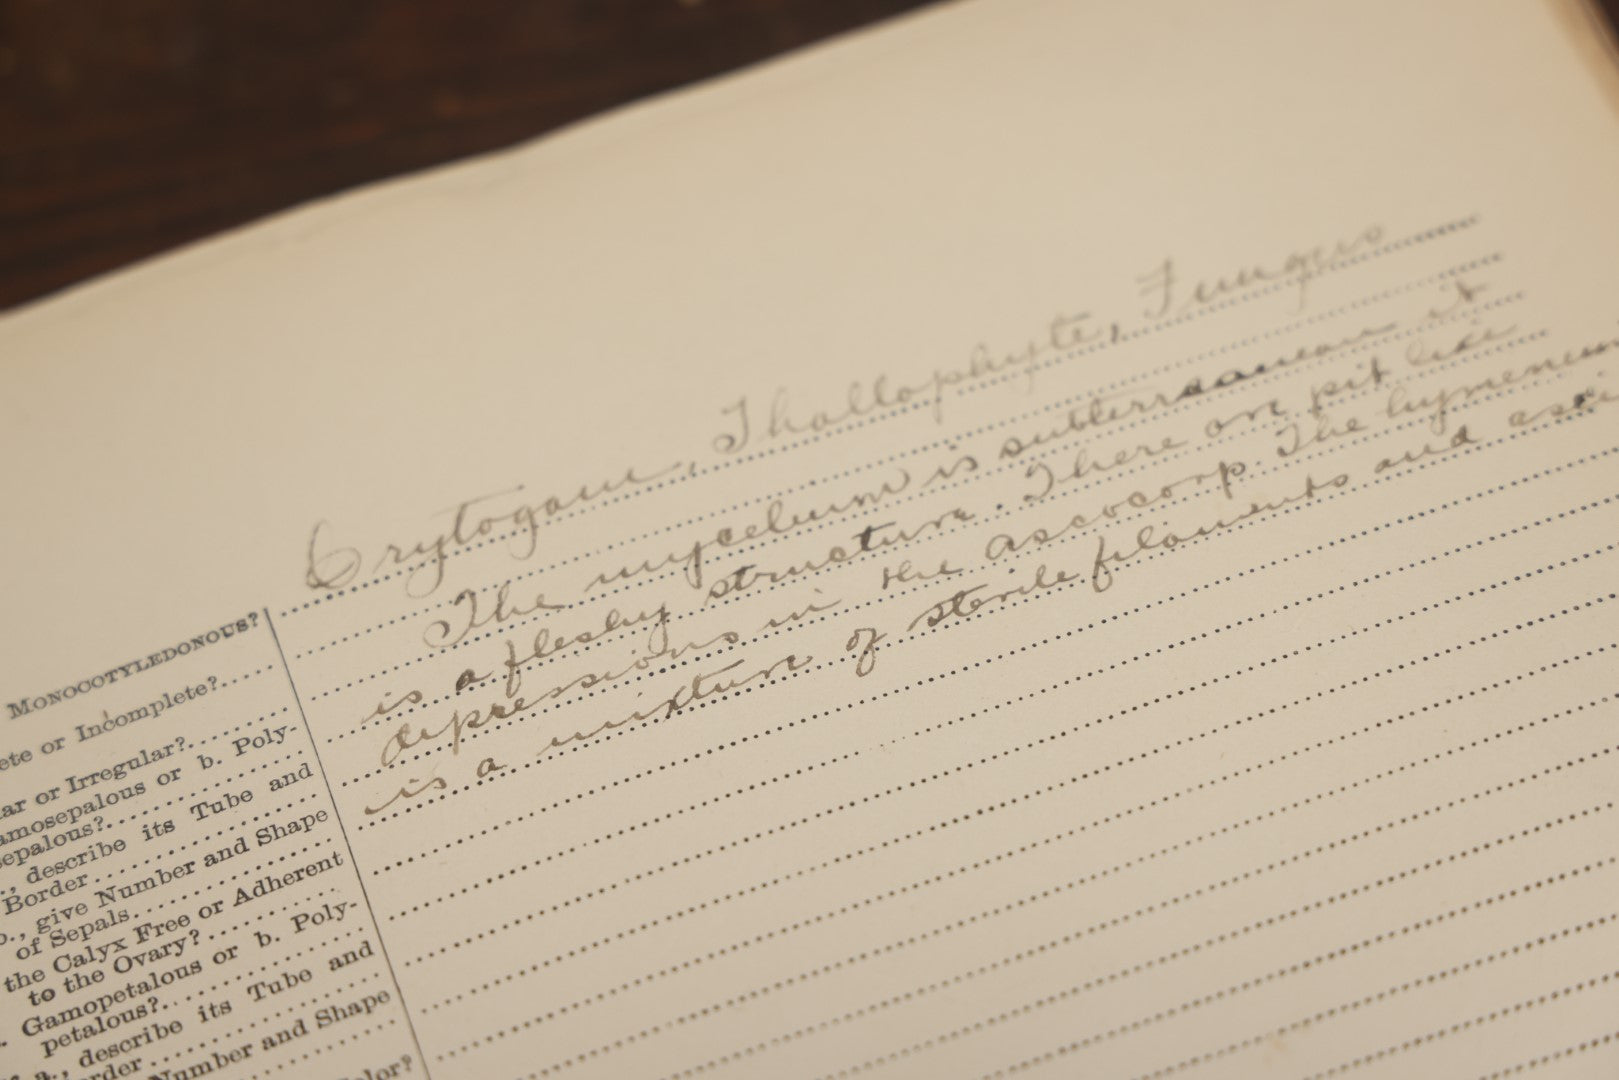 Crytogam, Thallophyte, Fungus
The mycelium is subterranean it
is a fleshy structure. There are pit like
depressions in the ascocorp. The hymenium
is a mixture of sterile filaments and asci
MONOCOTYLEDONOUS?
ete or Incomplete?
ar or Irregular?
amosepalous or b. Poly-
sepalous?
., describe its Tube and
Border
b., give Number and Shape
of Sepals
the Calyx Free or Adherent
to the Ovary?
. Gamopetalous or b. Poly-
petalous?
a., describe its Tube and
order
Number and Shape
olor?